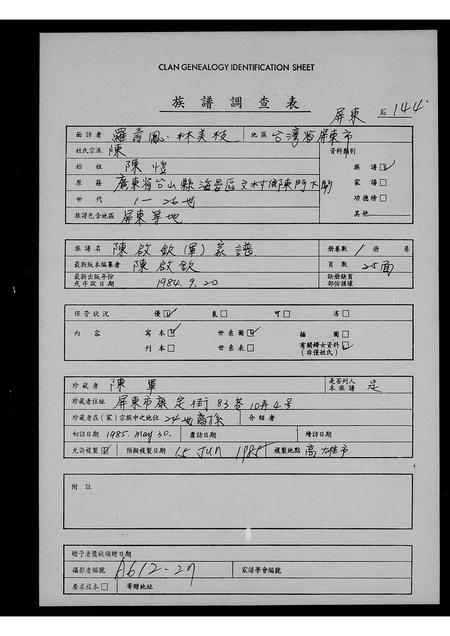 CLAN GENEALOGY IDENTIFICATION SHEET
族譜調查表
屏東 144
面訪者 羅壽鳳·林美枝 地區 台灣省屏東市
姓氏宗派 陳 資料類別
始祖 陳 族譜☑
原籍 廣東省台山縣海晏區 家譜□
世代 1-26世 功德榜□
族譜包含地區 屏東等地 其他
族譜名 陳啟欽(軍)家譜 册卷數 1册 卷
最新版本編纂者 陳啟欽 頁數 25面
最新出版年份或序跋日期 1984.9.20 缺册缺頁部份損壞
保管狀況 優☑ 良□ 可□ 劣□
內容 寫本☑ 世系圖☑ 插圖□
刊本□ 世系表□ 有關婦女資料☑(非僅姓氏)
珍藏者 陳軍 是否列入本族譜 是
珍藏者住址 屏東市康定街83巷10弄4號
珍藏者在(家)宗族中之地位 24世裔孫 介紹者
初訪日期 1985. May 30. 覆訪日期 續訪日期
允許複製☑ 預擬複製日期 15 JUN 1985 複製地點 高雄市
附註
贈予者獎狀頒贈日期
攝影者編號 A612-27 家譜學會編號
要求複本□ 寄贈地址